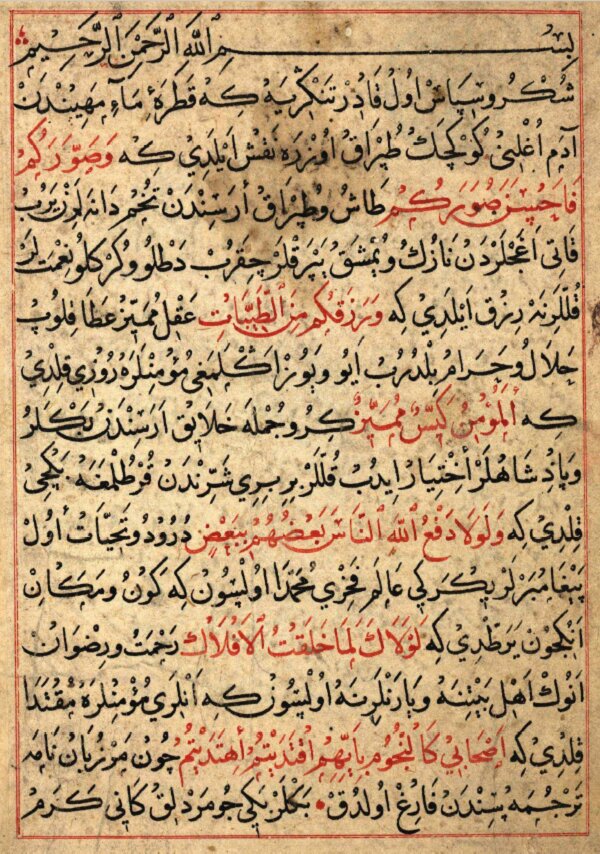 بِسْمِ اللهِ الرَّحْمٰنِ الرَّحِيمِ
شُكْر و سِپَاسْ اول قَادِرْ تَنْكْرِيَه كِه قَطْرَۀ مَآءِ مَهِينْدَنْ
آدم اُغْلَنِى كُوكْچَكْ طُپْرَاقْ اُوزْرَه نَقْشْ اَيْلَدِي كِه وَصَوَّرَكُمْ
فَاَحْسَنَ صُوَرَكُمْ طَاشْ و طُپْرَاقْ أرَسِنْدَنْ تُخُمْ دَانَه لَرْنْ يَرُبْ
قَاتِى اَغَجْلَرْدَنْ نَازُكْ و يُمْشَقْ يَپْرَقْلَرْ چِقَرُبْ دَطْلُو و كُرْكْلُو نِعْمَتْ لَرْ
قُلَّلَرِنَه رِزِقْ اَيْلَدِي كِه وَرَزَقَكُمْ مِنَ الطَّيِّبَاتِ عَقْلِ مُمَيِّزْ عَطَا قِلُوبْ
حَلَالْ و حَرَامْ بِلْدُرُبْ اَيُو و يَوُزْ اَكْلَمَغِى مُؤْمِنْلَرَه رُوزِي قِلْدِي
كِه اَلْمُؤْمِنُ كَيِّسٌ مُمَيِّزٌ كِرُو جُمْلَه خَلَايِقْ اَرَسِنْدَنْ بَكْلَرْ
و پَادِشَاهْلَرْ اُخْتِيَارْ ايدُبْ قُلَّلَرِنْ بِرْ بِرِي شَرِّنْدَنْ قُرْطُلْمَغَه بَكْجِى
قِلْدِي كِه وَلَوْلَا دَفْعُ اللهِ النَّاسَ بَعْضَهُمْ بِبَعْضٍ دُرُود و تَحِيَّاتْ أول
پَيْغَامْبَرْلَرْ يِكْرَكِي عَالَمْ فَخْرِي مُحَمَّدَا اولْسُونْ كِه كَوْنُ و مَكَانْ
اَنْكِچُونْ يَرَطْدِي كِه لَوْلَاكَ لَمَا خَلَقْتُ الْاَفْلَاكَ رَحْمَتْ و رِضْوَانْ
اَنُوكْ اَهْلِ بَيْتِنَه و يَارَنْلَرِنَه اولْسُونْ كِه اَنْلَرِي مُؤْمِنْلَرَه مُقْتَدَا
قِلْدِي كِه اَصْحَابِي كَالنُّجُومِ بِاَيِّهِمُ اقْتَدَيْتُمْ اهْتَدَيْتُمْ چُونْ مَرْزُبَانْ نَامَه
تَرْجُمَه سِنْدَنْ فَارِغْ اولدُقْ • بَكْلَرْ بَكِي جُومَرْدلِقْ كَانِى كَرَمْ